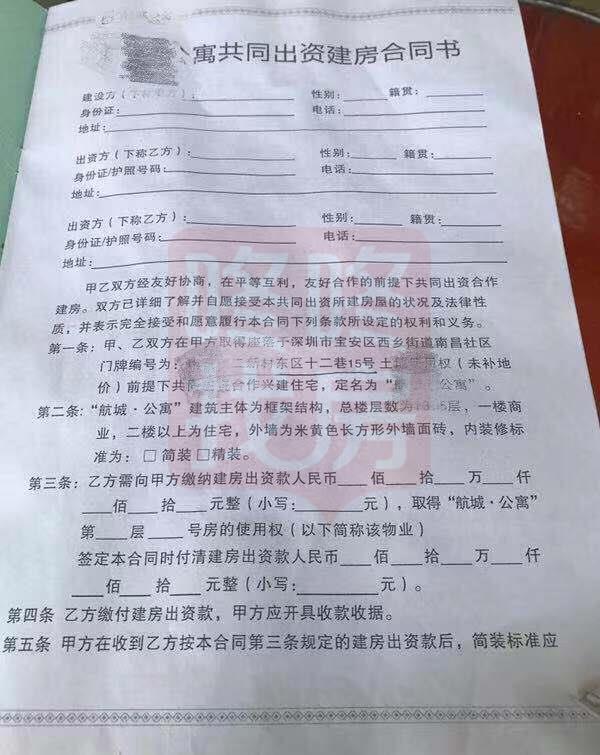 公寓共同出资建房合同书
建设方（下称甲方）： 性别： 籍贯：
身份证： 电话：
地址：
出资方（下称乙方）： 性别： 籍贯：
身份证/护照号码： 电话：
地址：
出资方（下称乙方）： 性别： 籍贯：
身份证/护照号码： 电话：
地址：
甲乙双方经友好协商，在平等互利，友好合作的前提下共同出资合作
建房。双方已详细了解并自愿接受本共同出资所建房屋的状况及法律性
质，并表示完全接受和愿意履行本合同下列条款所设定的权利和义务。
第一条：甲、乙双方在甲方取得座落于深圳市宝安区西乡街道南昌社区
门牌编号为： 新村东区十二巷15号 土 权（未补地
价）前提下共 合作兴建住宅，定名为“航 公寓”。
第二条：“航城·公寓”建筑主体为框架结构，总楼层数为 层，一楼商
业，二楼以上为住宅，外墙为米黄色长方形外墙面砖，内装修标
准为：□简装□精装。
第三条：乙方需向甲方缴纳建房出资款人民币____佰____拾____万____仟
____佰____拾____元整（小写：________元），取得“航城·公寓”
第____层____号房的使用权（以下简称该物业）
签定本合同时付清建房出资款人民币____佰____拾____万____仟
____佰____拾____元整（小写：________元）。
第四条 乙方缴付建房出资款，甲方应开具收款收据。
第五条 甲方在收到乙方按本合同第三条规定的建房出资款后，简装标准应